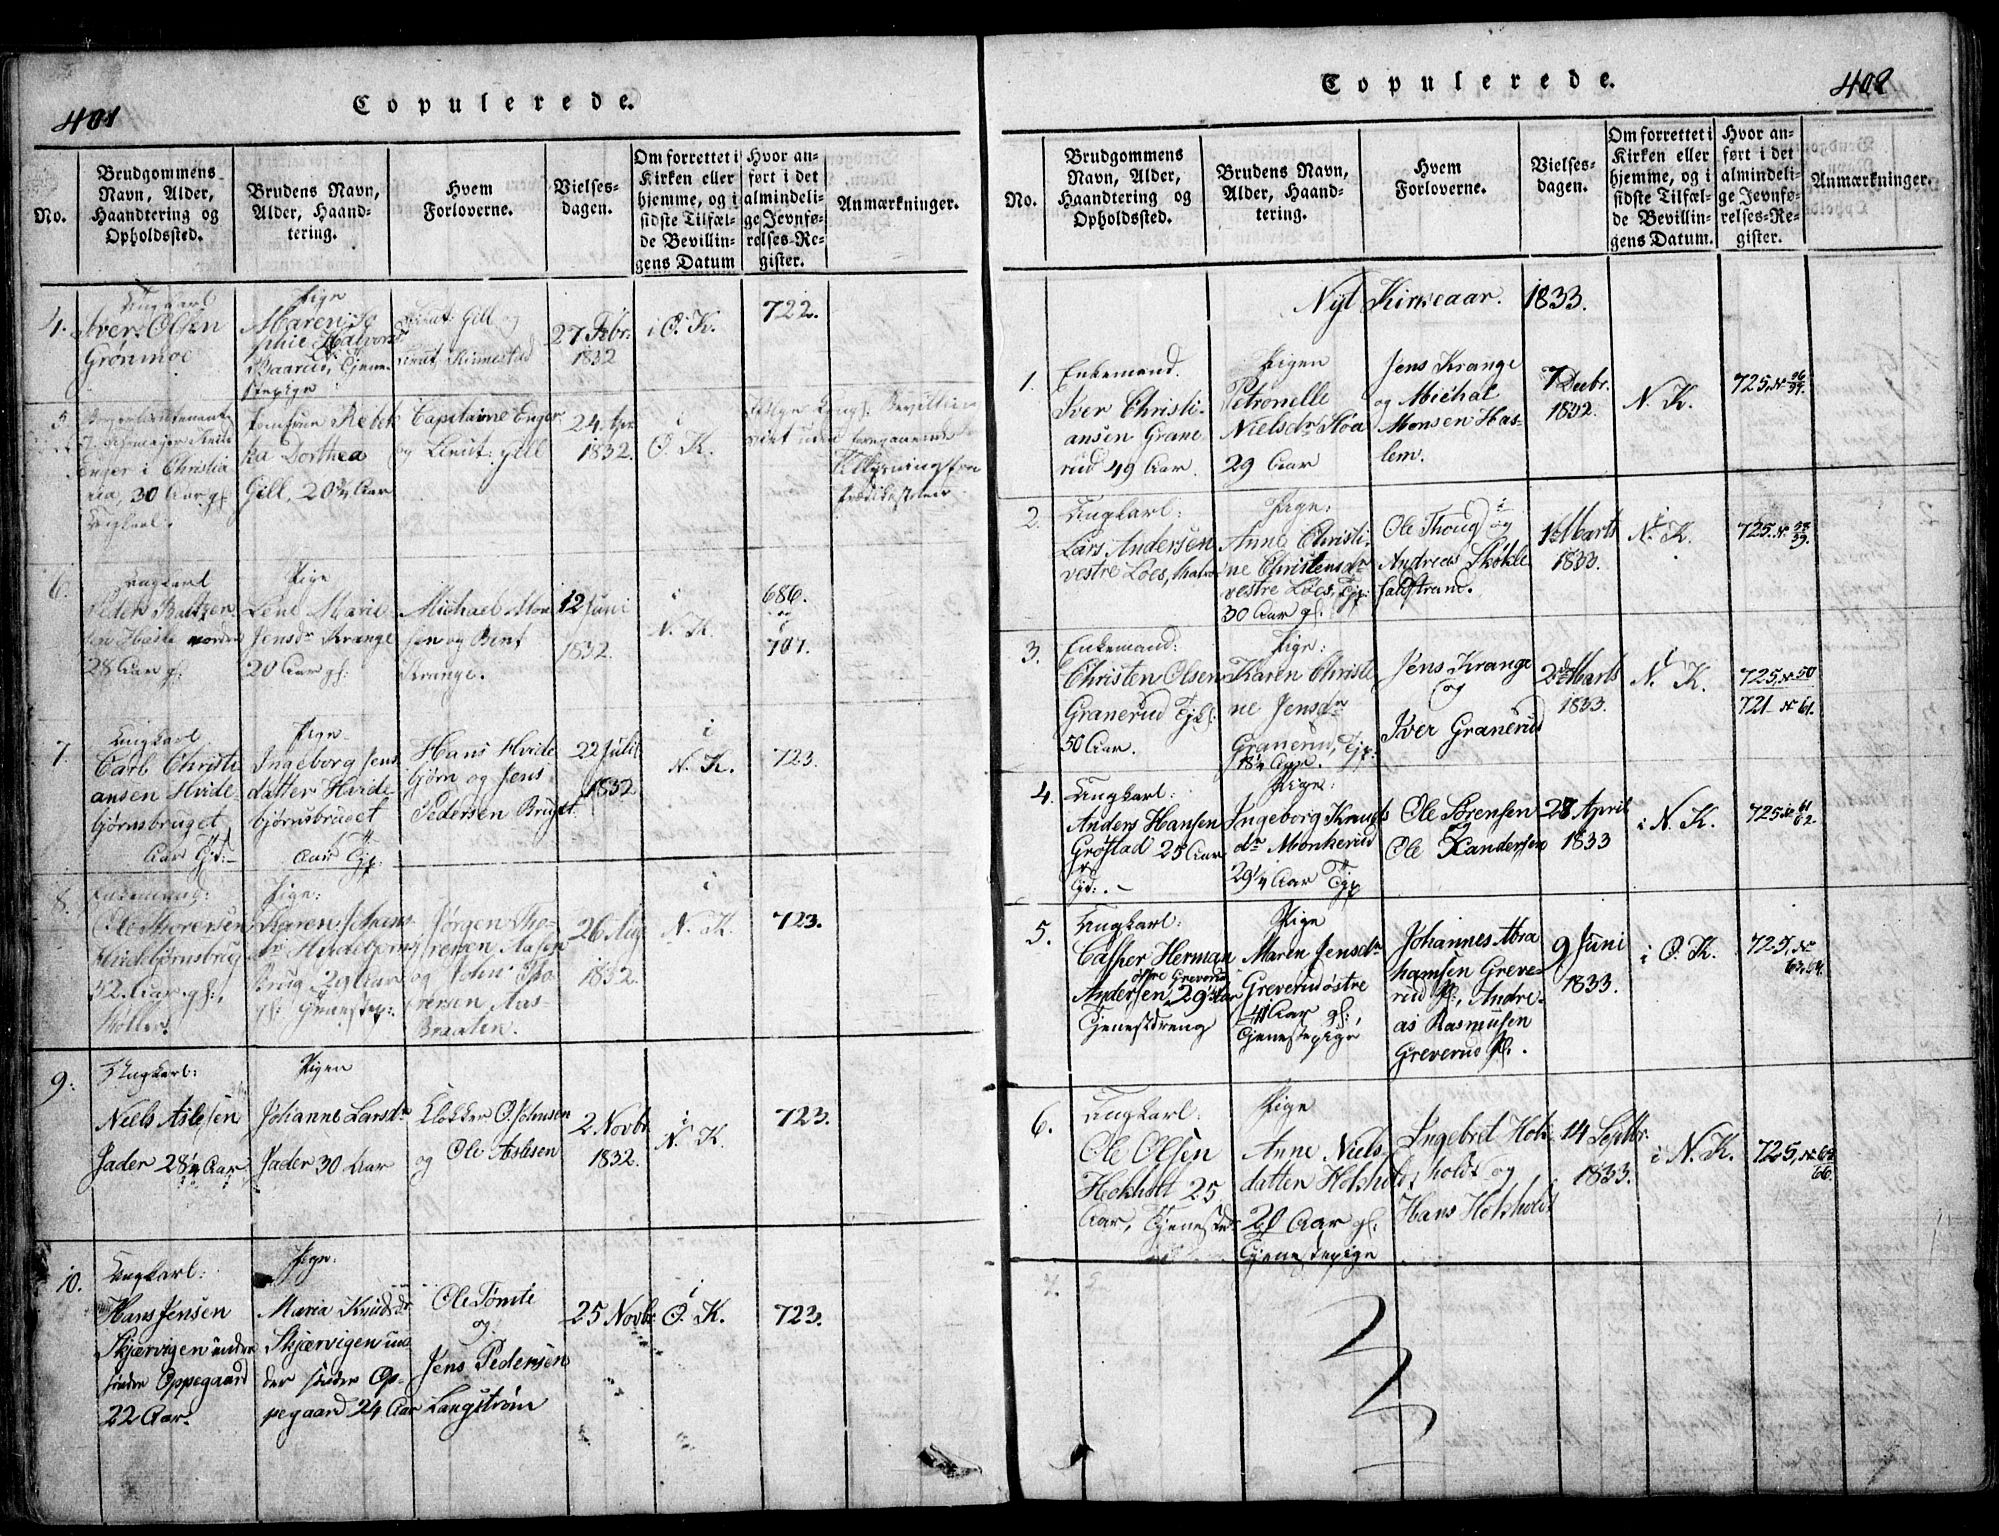 401
Copulerede.
No.
Brudgommens
Navn, Alder,
Haandtering og
Opholdssted.
Brudens Navn,
Alder, Haand-
tering.
Hvem
Forloverne.
Vielses-
dagen.
Om forrettet i
Kirken eller
hjemme, og i
sidste Tilfæl-
de Bevillin-
gens Datum
Hvor an-
ført i det
almindeli-
ge Jevnfø-
relses-Re-
gister.
Anmærkninger.
4.
Ungkarl
Iver Olsen
Grönmoe
Pige
Maren So
phie Halvors
Baarud, Tjene
stepige
Lieut: Gill og
Lieut:
27 Febr.
1832
i O. K.
722.
5.
Enger i Christia
nia, 30 Aar gl.
Ungkarl.
Jomfrue Rebek
ka Dorthea
Gill, 20 3/4 Aar
Capitaine Enger
og Lieut: Gill
24 Apr
1832.
i
O. K.
6.
Ungkarl
Peder Baltzer
sen
28 Aar gl.
Pige
Lene Marie
Jensdr Krange
20 Aar gl:
Michael Mon
sen og Bent
Krange.
12 Juni
1832.
i
N. K.
686.
og
i
707.
7.
Ungkarl
Carl Christi
ansen Hvide-
bjørnsbruget
Aar Tjd:
Pige
Ingeborg Jens
datter Hvide-
bjørnsbruget
Aar Tjp:
Hans Hvide
bjørn og Jens
Pedersen Bruget.
22 Juli
1832
i
N. K.
723.
8.
Enkemand:
Ole Thoresen
Hvidebjørnsbrug
52 Aar gl.,
Pige:
Karen Johans
dr Hvidebjørns
Brug 29 Aar
gl: Tjenestep:
Jörgen Tho-
resen Aasen
og John Tho
resen Aas-
Braaten.
26 Aug
1832.
i
N. K.
723.
9.
Ungkarl:
Niels Aslesen
Jader 28 1/4 Aar
Pigen
Johanne Larsdr
Jader 30 Aar
Klokker O. Johnsen
og Ole Aslesen
2 Novbr
1832.
i
N. K.
723.
10.
Ungkarl:
Hans Jensen
Skjærvigen under
söndre Oppegaard
22 Aar.
Pige:
Maria Knudsdr
Skjærvigen un
der söndre Op-
pegaard 24 Aar
Ole Tömte
og
Jens Pedersen
Langström
25 Novbr
i
O. K.
723.
402
Copulerede.
No.
Brudgommens
Navn, Alder,
Haandtering og
Opholdssted.
Brudens Navn,
Alder, Haand-
tering.
Hvem
Forloverne.
Vielses-
dagen.
Om forrettet i
Kirken eller
hjemme, og i
sidste Tilfæl-
de Bevillin-
gens Datum.
Hvor an-
ført i det
almindeli-
ge Jevnfø-
relses-Re-
gister.
Anmærkninger.
Nyt Kirkeaar. 1833.
1.
Enkemand.
Iver Christi-
ansen Grane
rud 49 Aar.
Pigen
Petronelle
Nielsdr Koa
29 Aar
Jens Krange
og Michal
Monsen Has-
lem.
7 Decbr.
1832.
N. K.
725,
2.
Ungkarl:
Lars Andersen
vestre Loes,
Pige:
Anne Christi-
ne Christensdr
vestre Löes, Tjp:
30 Aar gl.
Ole Thoug og
Andreas Skökle
faldstrand.
1 Marts
1833.
i
N. K.
725
3.
Enkemand:
Christen Olsen
Granerud
50 Aar.
Pige:
Karen Christi
ne Jensdr
Granerud, Tjp:
18 1/4 Aar.
Jens Krange
og
Iver Granerud
2 Marts
1833.
i
N. K.
725, № 50
721 № 61.
4.
Ungkarl:
Anders Hansen
Gröstad 25 Aar
Tjd:.
Pige:
Ingeborg Knuds
dr Monkerud
29 1/4 Aar Tjp
Ole Sörensen
og
Ole Randersen
28 April
1833
i N. K.
725 № 61
62.
5.
Ungkarl:
Casper Herman
östre Greverud
Andersen 29 Aar
Tjenestdreng
Pige
Maren Jensdr
Greverud östre
41 Aar gl:,
Tjenestepige
Johannes Abra
hamsen Greve-
rud og, Andre-
as Rasmusen
Greverud.
9 Juni
1833.
i O. K.
725, №
63, 64.
6.
Ungkarl:
Ole Olsen
Hokholt 25
Aar, Tjenestedr
Pige
Anne Niels
datter Hokholt
Aar gl.
Tjenestepige
Ingebret Hok
holdt og
Hans Hokholdt
14 Septbr.
1833.
i N. K.
725, № 65
66.
7.